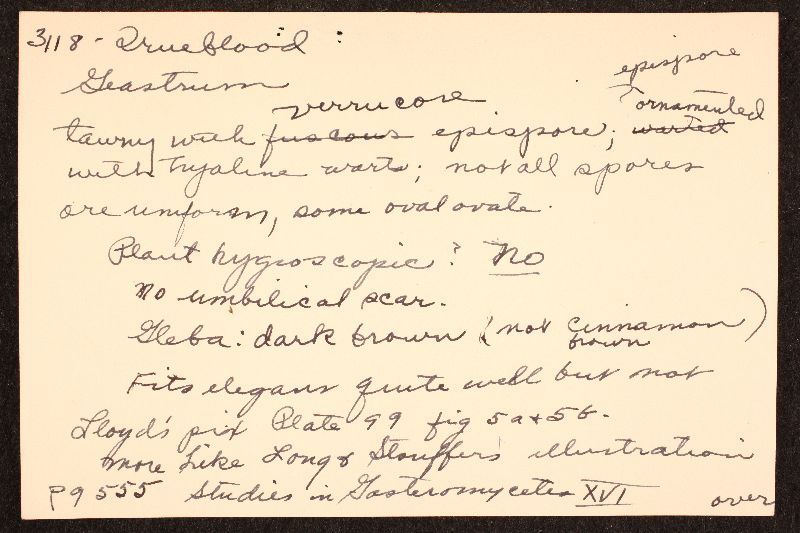 3118 - Trueblood :
Geastrum
verrucose
epispore
tawny with fuscous epispore; ornamented warted
with hyaline warts; not all spores
are uniform, some oval ovate.
Plant hygroscopic? No
No umbilical scar.
Gleba: dark brown (not cinnamon brown)
Fits elegans quite well but not
Lloyd's pix Plate 99 fig 5a & 5b.
more like Long & Stouffer's illustration
pg 555 Studies in Gasteromycetes XVI
over